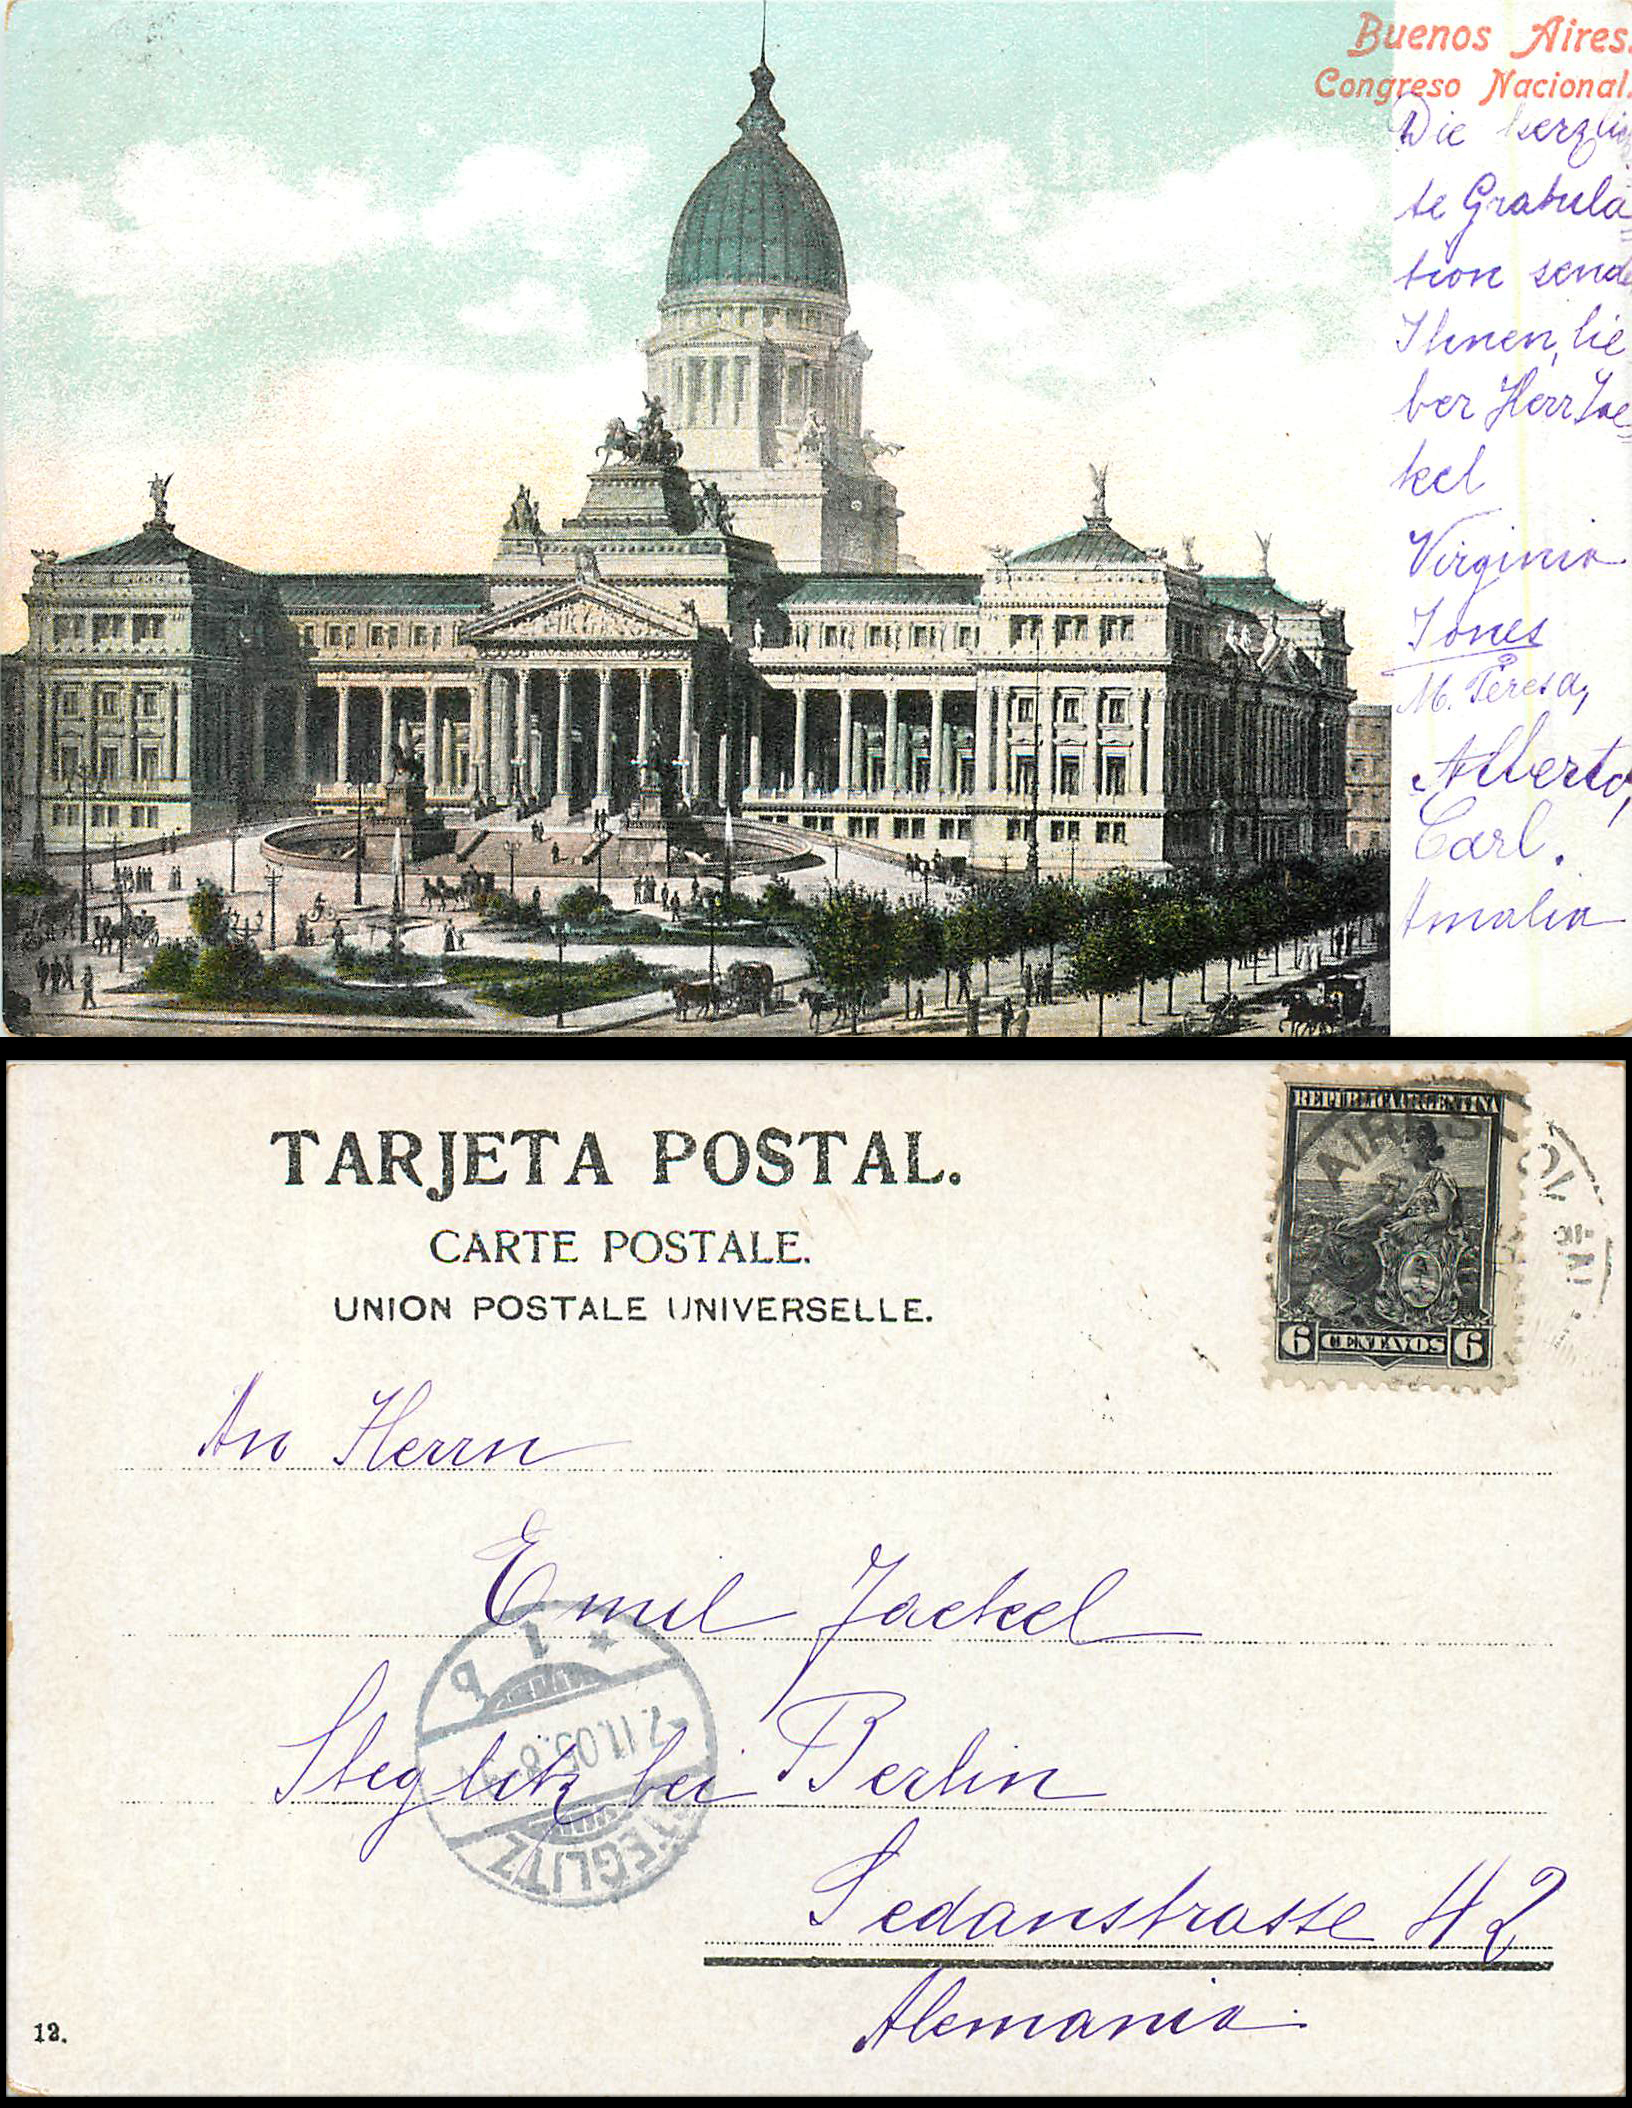 Buenos Aires.
Congreso Nacional.
Die herzlich
te Gratula
tion sende
Ihnen, lie
ber Herr Jae
kel
Virginia
Jones
M. Teresa,
Alberto,
Carl.
Amalia
TARJETA POSTAL.
CARTE POSTALE.
UNION POSTALE UNIVERSELLE.
REPUBLICA ARGENTINA
AIRES
6 CENTAVOS 6
An Herrn
Emil Jaekel
Steglitz bei Berlin
Sedanstrasse 42
Alemania.
* 1 q
7.11.05.8-
STEGLITZ
12.